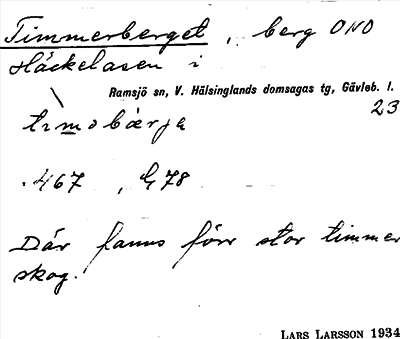 Timmerberget, berg ONO
Häckelasen i
Ramsjö sn, V. Hälsinglands domsagas tg, Gävleb. l.
23
timobärja
467, G 78
Där fanns förr stor timmer
skog.
LARS LARSSON 1934